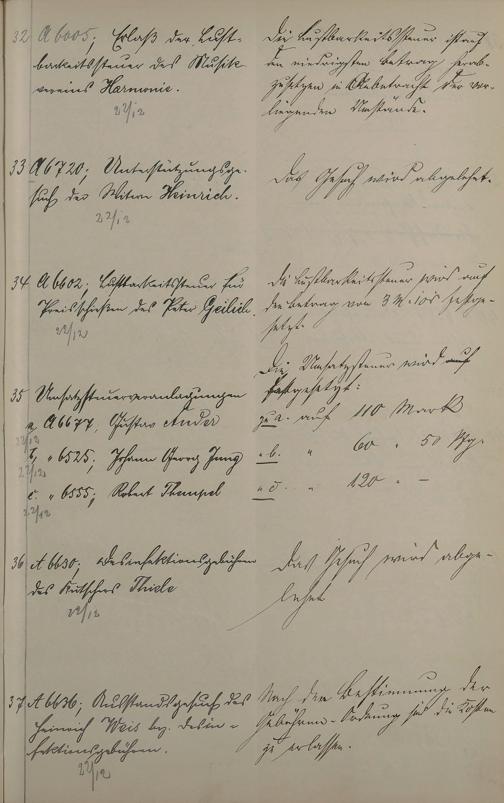 32 A 6005; Erlaß der Lust-
barkeitssteuer des Musik
vereins Harmonie.
22/12
Die Lustbarkeitssteuer ist auf
den niedrigsten Betrag herab-
zusetzen in Anbetracht der vor-
liegenden Umstände.
33 A 6720; Unterstützungsge-
such der Witwe Heinrich.
22/12
Das Gesuch wird abgelehnt.
34 A 6602; Lustbarkeitssteuer für
Preisschießen des Peter Geilich.
22/12
Die Lustbarkeitssteuer wird auf
den Betrag von 3 M. 10 festge-
setzt.
35 Umsatzsteuerveranlagungen
a, A 6677, Gustav Ander
22/12
b, " 6525, Johann Georg Jung
22/12
c. " 6555; Robert Thempel
22/12
Die Umsatzsteuer wird auf
festgesetzt:
zu a. auf 110 Mark
" b. " 60 " 50 Pfg.
" c. " 120 " -
36 A 6630; Desinfektionsgebühren
des Kutschers Thiele
22/12
Das Gesuch wird abge-
lehnt
37 A 6636; Ausstandsgesuch des
Heinrich Weis bez. Desin-
fektionsgebühren.
22/12
Nach den Bestimmung der
Gebühren-Ordnung sind die Kosten
zu erlassen.